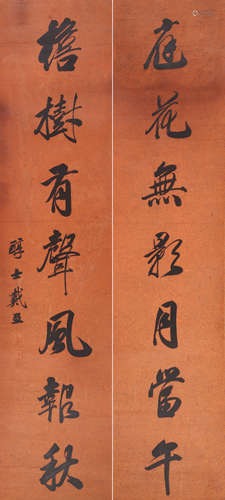 庭花無影月當午
檐樹有聲風報秋
醇士戴熙